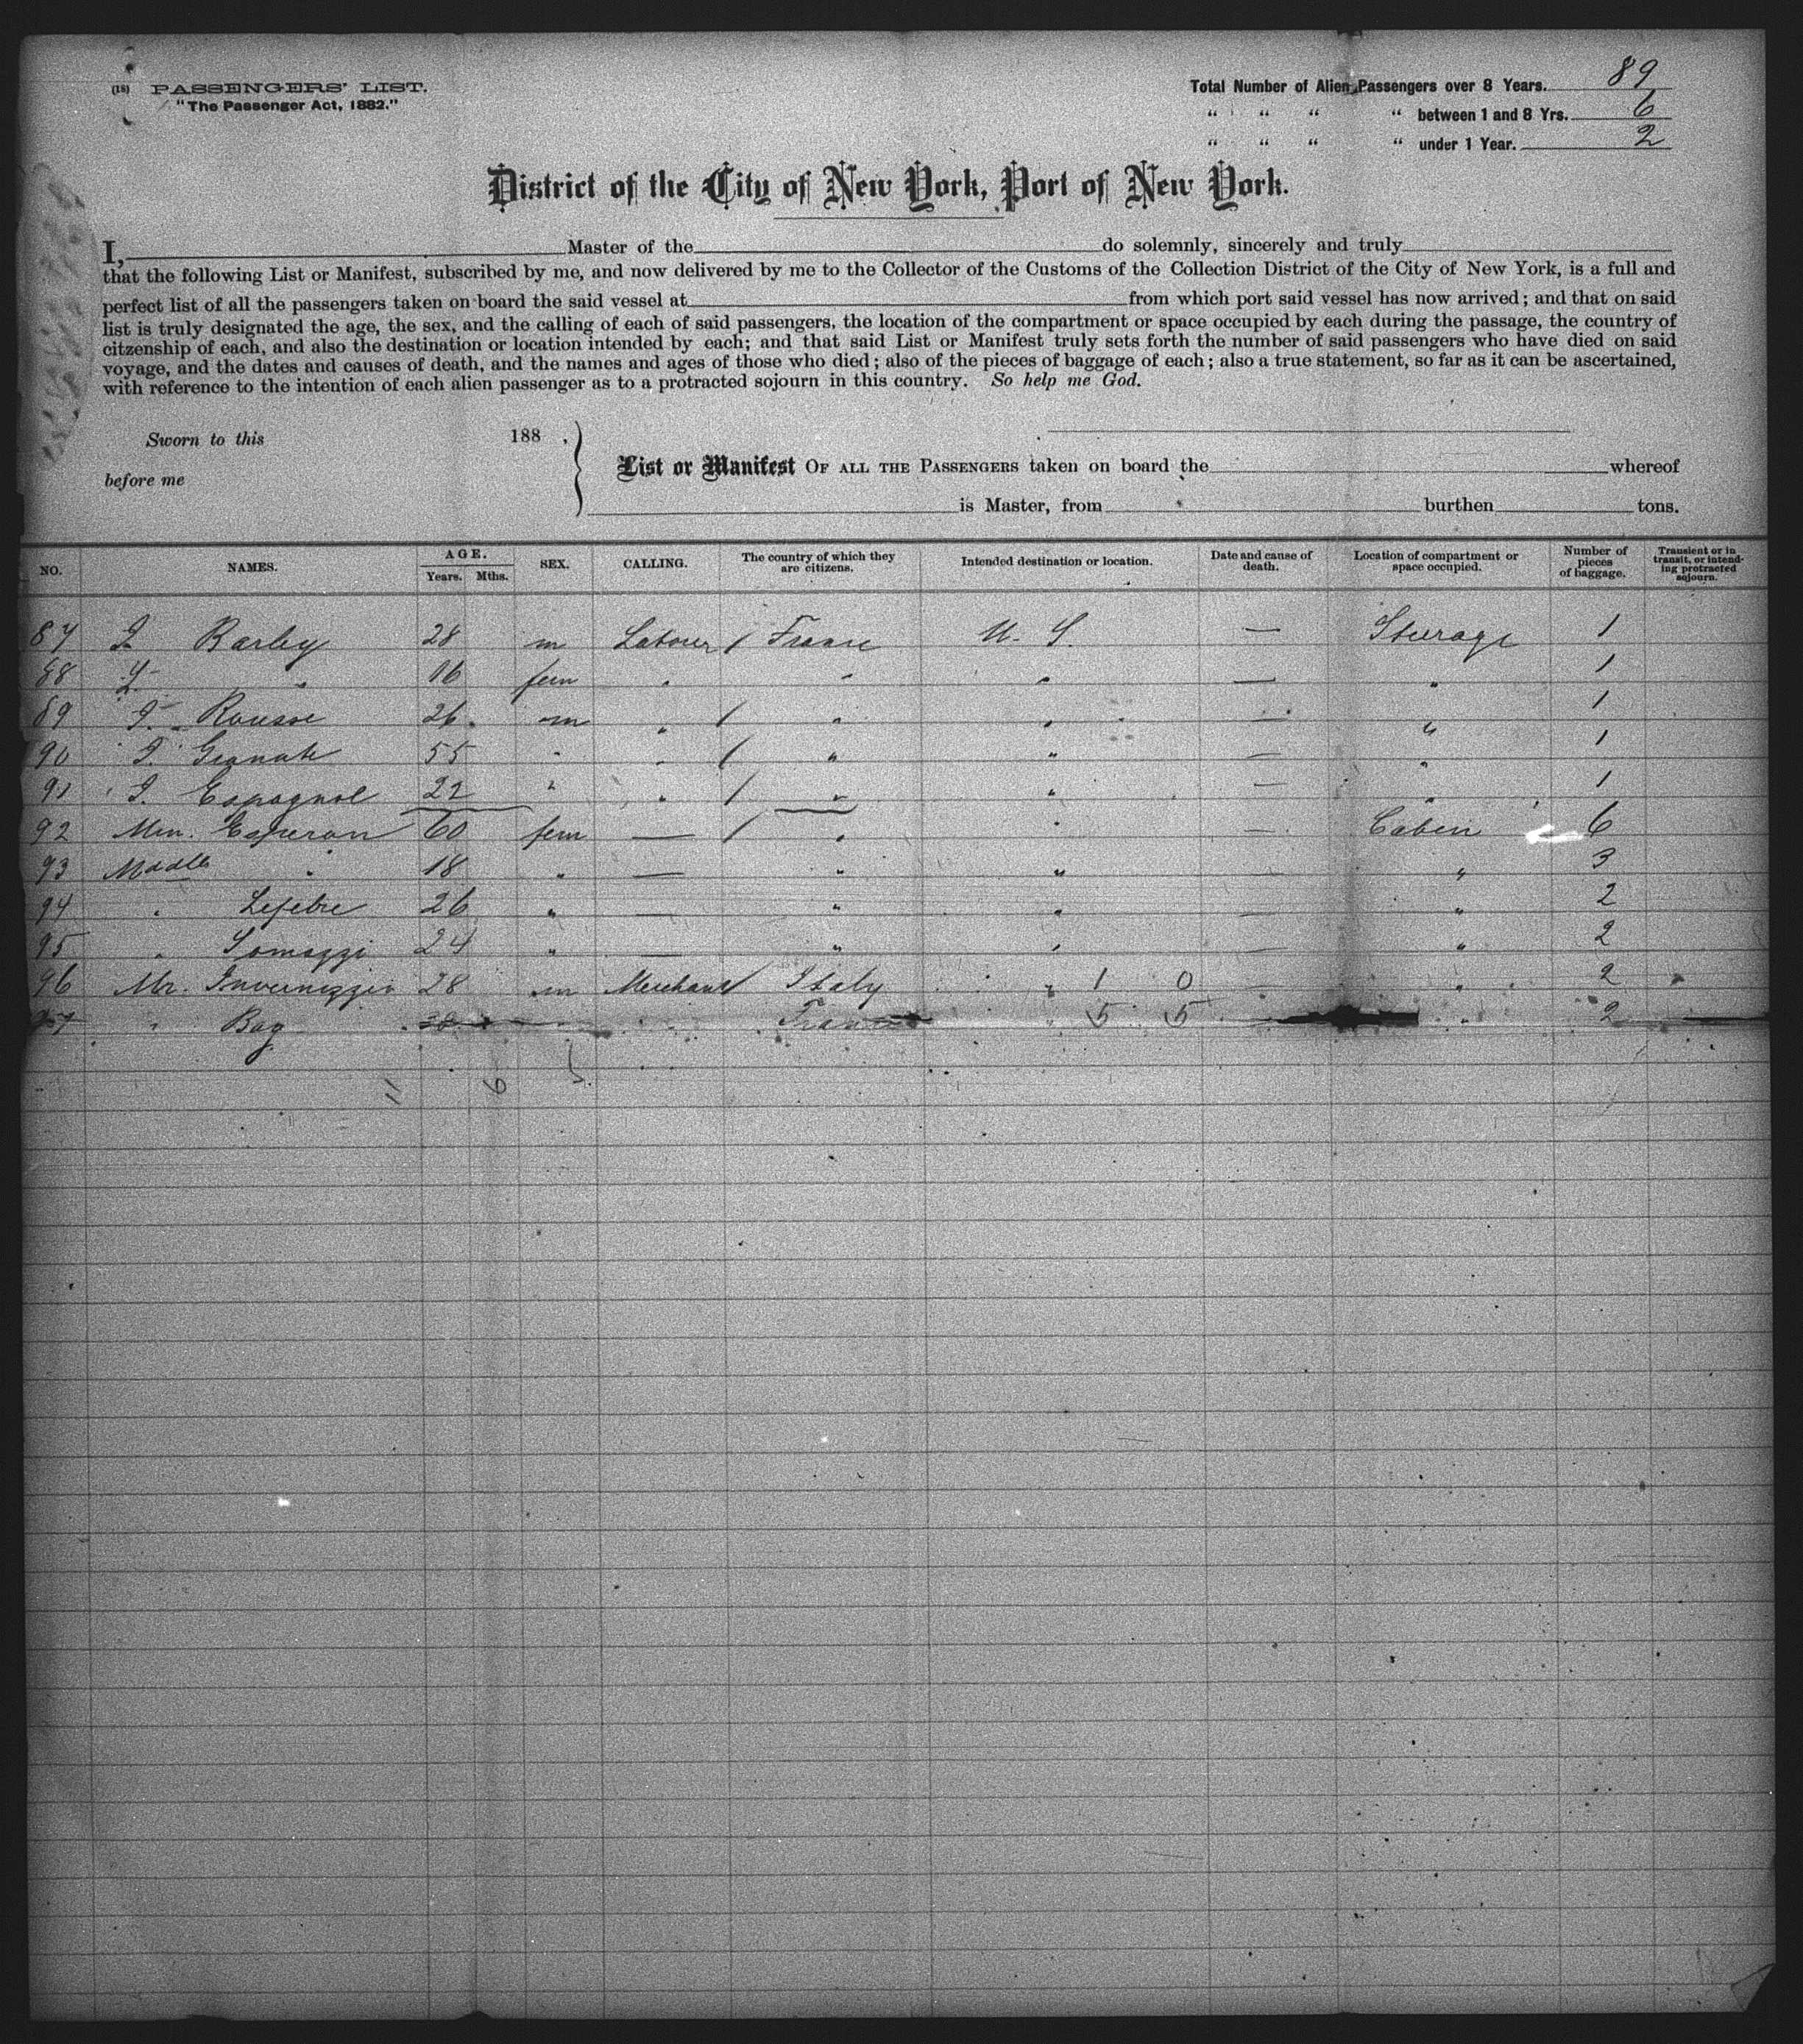 (18) PASSENGERS' LIST.
"The Passenger Act, 1882."
Total Number of Alien Passengers over 8 Years. 89
" " " " between 1 and 8 Yrs. 6
" " " " under 1 Year. 2
District of the City of New York, Port of New York.
I, Master of the do solemnly, sincerely and truly
that the following List or Manifest, subscribed by me, and now delivered by me to the Collector of the Customs of the Collection District of the City of New York, is a full and
perfect list of all the passengers taken on board the said vessel at from which port said vessel has now arrived; and that on said
list is truly designated the age, the sex, and the calling of each of said passengers, the location of the compartment or space occupied by each during the passage, the country of
citzenship of each, and also the destination or location intended by each; and that said List or Manifest truly sets forth the number of said passengers who have died on said
voyage, and the dates and causes of death, and the names and ages of those who died; also of the pieces of baggage of each; also a true statement, so far as it can be ascertained,
with reference to the intention of each alien passenger as to a protracted sojourn in this country. So help me God.
Sworn to this 188 ,
before me
List or Manifest OF ALL THE PASSENGERS taken on board the whereof
is Master, from burthen tons.
NO. NAMES. AGE. Years. Mths. SEX. CALLING. The country of which they are citizens. Intended destination or location. Date and cause of death. Location of compartment or space occupied. Number of pieces of baggage. Transient or in transit, or intending protracted sojourn.
87 J. Barley 28 m Labourer / France U. S. — Steerage 1
88 " 16 fem " " " — " 1
89 J. Rousse 26 m " / " " — " 1
90 J. 55 " " / " " — " 1
91 J. Espagnol 22 " " / " " — " 1
92 Mm. Esperon 60 fem — / " " — Cabin 6
93 Madlle " 18 " — " " — " 3
94 " Lefebre 26 " — " " — " 2
95 " Somazzi 24 " — " " — " 2
96 Mr. Invernizzi 28 m Merchant / Italy " 1 0 — " 2
97 " Bay " France " 5 5 — " 2
11 6 5